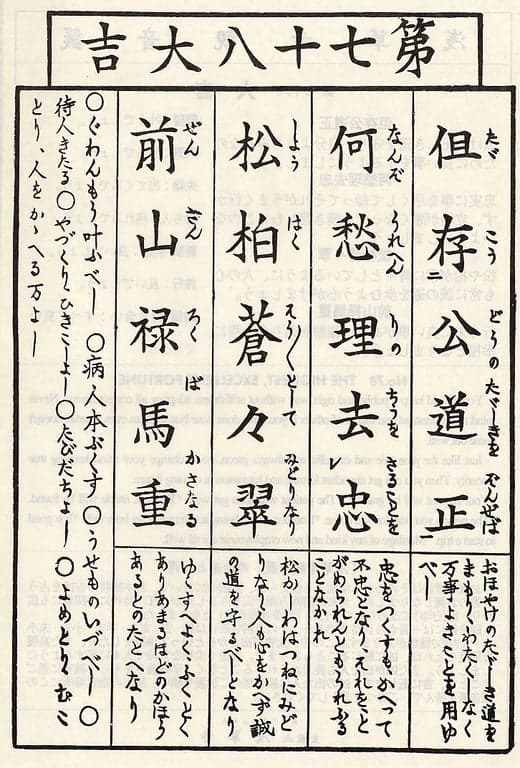 第七十八大吉
但存公道正
たゞ こう どうの たゞしきを ぞんせば
おほやけのたゞしき道を
まもり、わたくしなく
万事よきことを用ゆ
べし
何愁理去忠
なんぞ うれへん りの ちうを さることを
忠をつくすもかへつて
不忠となり、それをこと
がめられんともうれふる
ことなかれ
松柏蒼々翠
しよう はく そう〱として みどりなり
松かしわはつねにみど
りなり、人も心をかへず誠
の道を守るべしとなり
前山禄馬重
ぜん ざん ろく ば かさなる
ゆくすへよく、ふくとく
ありあまるほどのかほり
あるとのたとへなり
○ぐわんもう叶ふべし ○病人本ぶくす○うせものいづべし○
待人きたる○やづくり、ひきこしよし○たびだちよし○よめとり、むこ
とり、人をかゝへる万よし